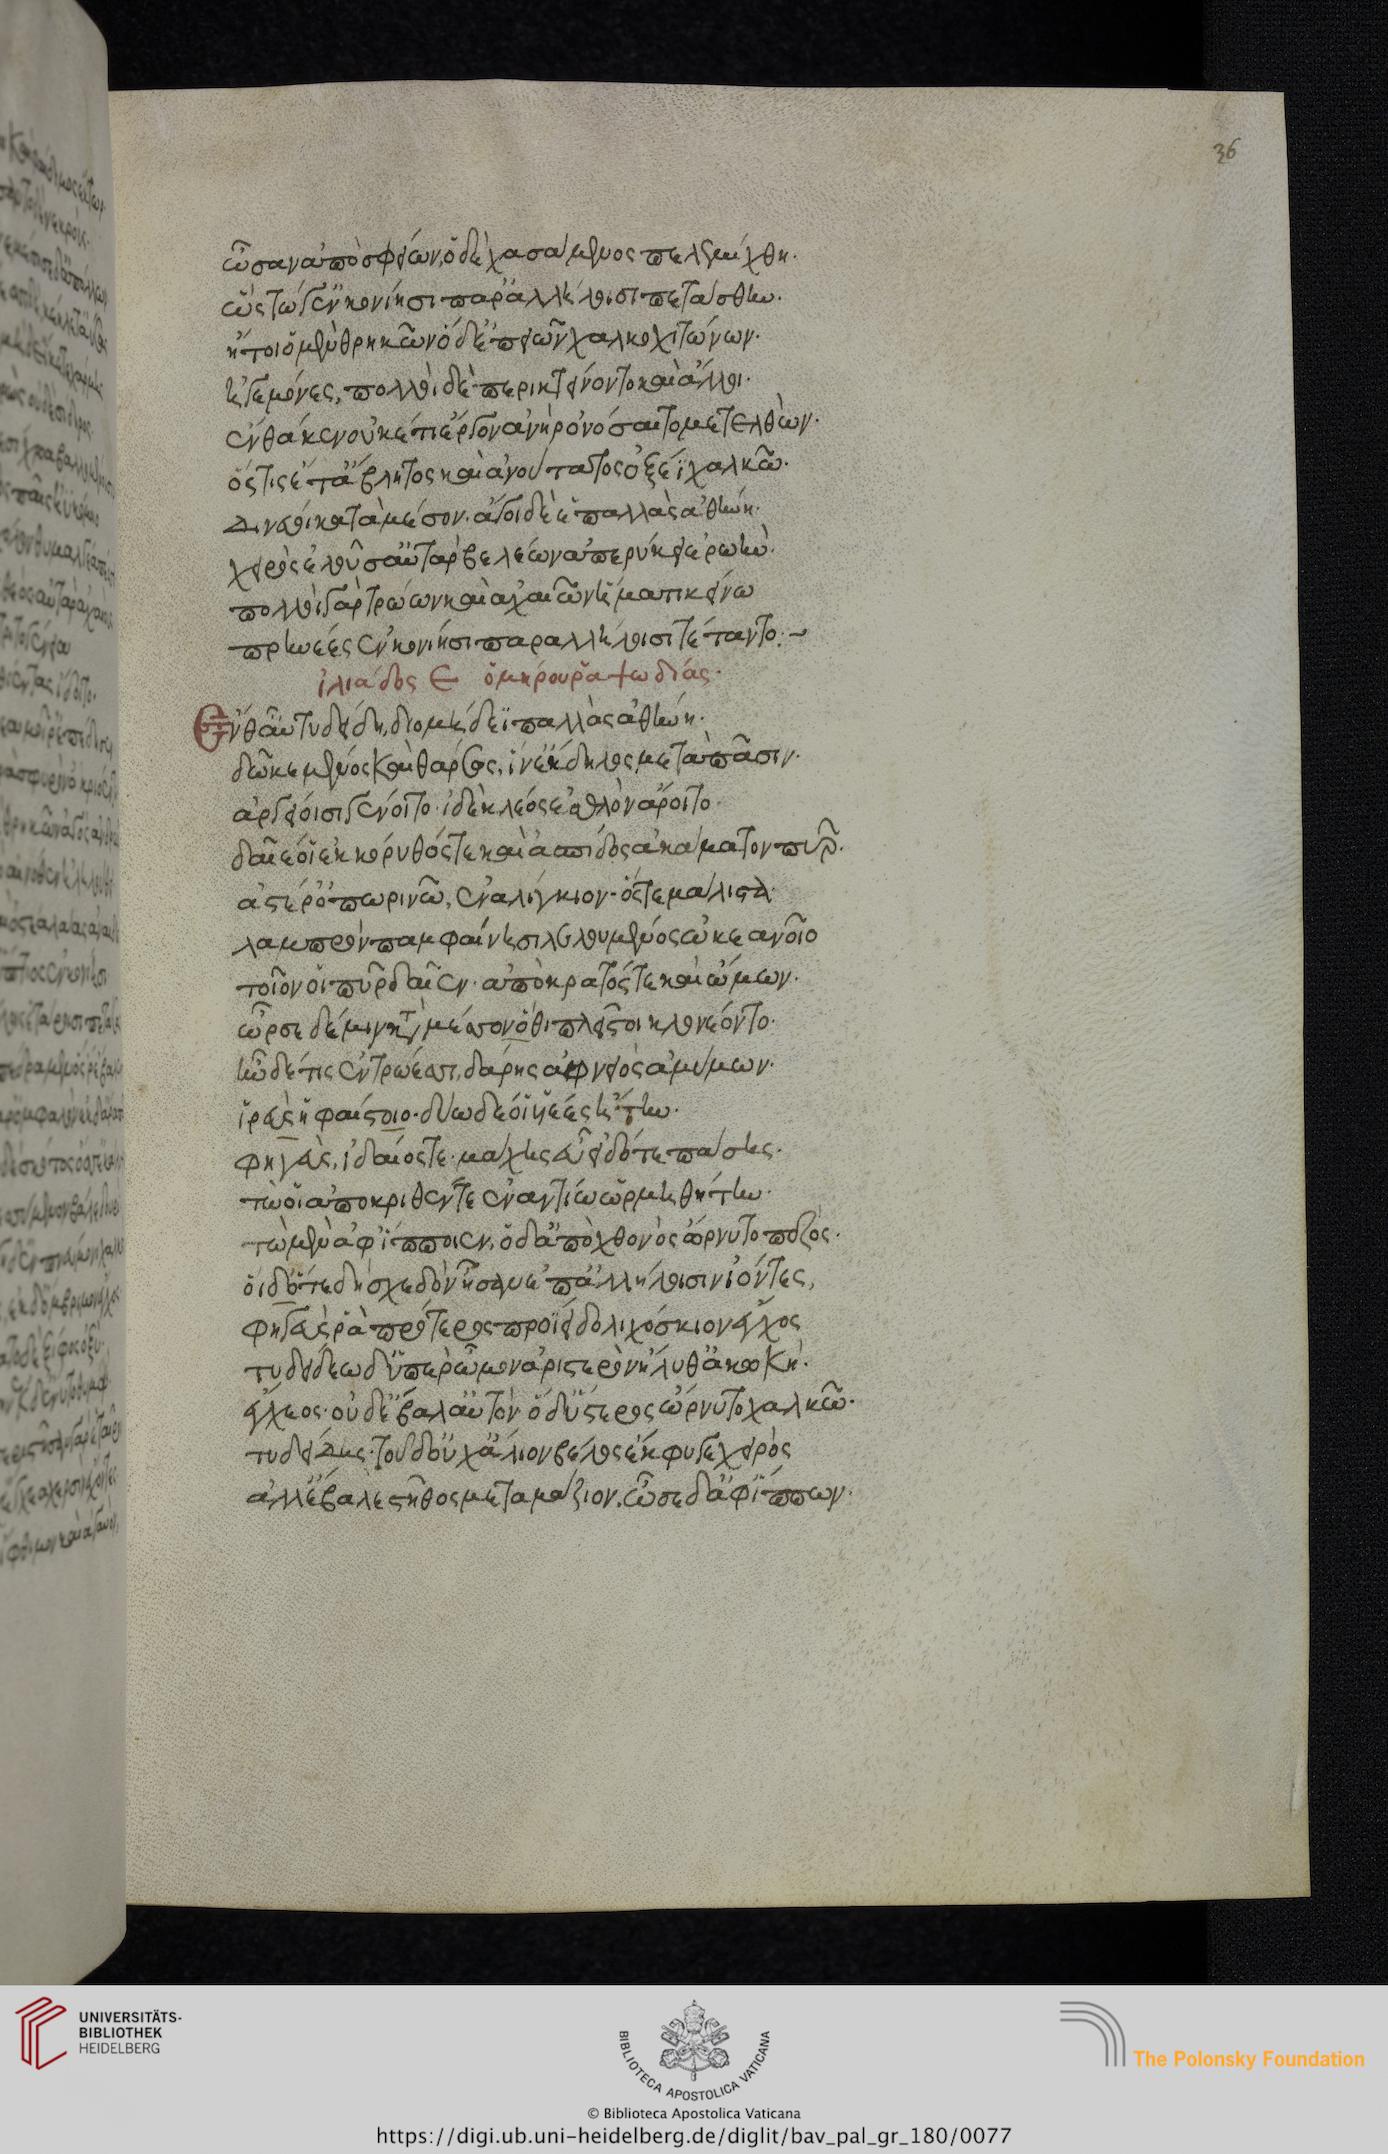 36
ὦσαν ἀπὸ σφείων, ὁ δὲ χασάμενος πελεμίχθη.
ὣς τώγ' ἐν κονίησι παρ' ἀλλήλοισι πετάσθην.
ἤτοι ὁ μὲν θρηκῶν ὁ δ' ἐπειῶν χαλκοχιτώνων.
ἡγεμόνες, πολλοὶ δὲ περικτείνοντο καὶ ἄλλοι.
ἔνθα κεν οὐκέτι ἔργον ἀνὴρ ὀνόσαιτο μετελθών.
ὅστις ἔτ' ἄβλητος καὶ ἀνούτατος ὀξέϊ χαλκῶ.
δινεύοι κατὰ μέσον. ἄγοι δὲ ἑ παλλὰς ἀθήνη.
χειρὸς ἑλοῦσ' αὐτὰρ βελέων ἀπερύκει ἐρωήν.
πολλοὶ γὰρ τρώων καὶ ἀχαιῶν ἤματι κείνω
πρηνέες ἐν κονίησι παρ' ἀλλήλοισι τέταντο:~
ἰλιάδος Ε ὁμήρου ῥαψωδίας.
Ἔνθ' αὖ τυδείδη, διομήδεϊ παλλὰς ἀθήνη.
δῶκε μένος καὶ θάρσος, ἵν' ἔκδηλος μετὰ πᾶσιν.
ἀργείοισι γένοιτο. ἰδὲ κλέος ἐσθλὸν ἄροιτο.
δαῖέ οἱ ἐκ κόρυθός τε καὶ ἀσπίδος ἀκάματον πῦρ.
ἀστέρ' ὀπωρινῶ, ἐναλίγκιον. ὅς τε μάλιστα.
λαμπρὸν παμφαίνησι λελουμένος ὠκεανοῖο
τοῖόν οἱ πῦρ δαῖεν. ἀπὸ κρατός τε καὶ ὤμων.
ὦρσε δέ μιν κατὰ μέσσον ὅθι πλεῖστοι κλονέοντο.
ἦν δέ τις ἐν τρώεσσι, δάρης ἀφνειὸς ἀμύμων.
ἱρεὺς ἡφαίστοιο. δύω δέ οἱ υἱέες ἤστην.
φηγεὺς, ἰδαῖός τε. μάχης εὖ εἰδότε πάσης.
τώ οἱ ἀποκριθέντε ἐναντίω ὡρμηθήτην.
τὼ μὲν ἀφ' ἵπποιεν, ὁ δ' ἀπὸ χθονὸς ὄρνυτο πεζός.
οἱ δ' ὅτε δὴ σχεδὸν ἦσαν ἐπ' ἀλλήλοισιν ἰόντες,
φηγεύς ῥα πρότερος προΐει δολιχόσκιον ἔγχος
τυδείδεω δ' ὑπὲρ ὦμον ἀριστερὸν ἤλυθ' ἀκωκή.
ἔγχεος. οὐδ' ἔβαλ' αὐτόν. ὁ δ' ὕστερος ὤρνυτο χαλκῶ.
τυδείδης. τοῦ δ' οὐχ' ἅλιον βέλος ἔκφυγε χειρός
ἀλλ' ἔβαλε στῆθος μεταμάζιον. ὦσε δ' ἀφ' ἵππων.
UNIVERSITÄTS-
BIBLIOTHEK
HEIDELBERG
BIBLIOTECA APOSTOLICA VATICANA
The Polonsky Foundation
© Biblioteca Apostolica Vaticana
https://digi.ub.uni-heidelberg.de/diglit/bav_pal_gr_180/0077